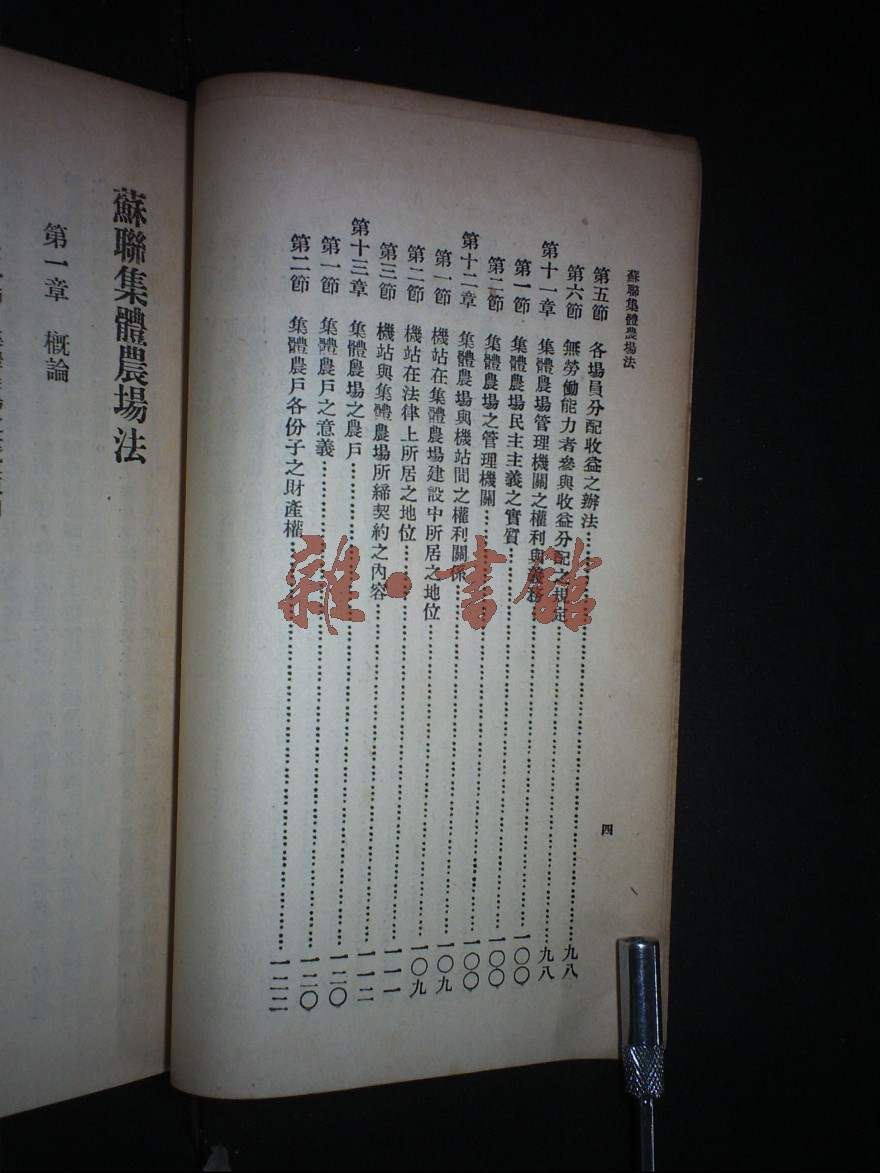 蘇聯集體農場法
四
第五節 各場員分配收益之辦法……九八
第六節 無勞働能力者參與收益分配之規定……九八
第十一章 集體農場管理機關之權利與義務……一〇〇
第一節 集體農場民主主義之實質……一〇〇
第二節 集體農場之管理機關……一〇〇
第十二章 集體農場與機站間之權利關係……一〇九
第一節 機站在集體農場建設中所居之地位……一〇九
第二節 機站在法律上所居之地位……一一一
第三節 機站與集體農場所締契約之內容……一一二
第十三章 集體農場之農戶……一二〇
第一節 集體農戶之意義……一二〇
第二節 集體農戶各份子之財產權……一二二
蘇聯集體農場法
第一章 概論
雜·書館